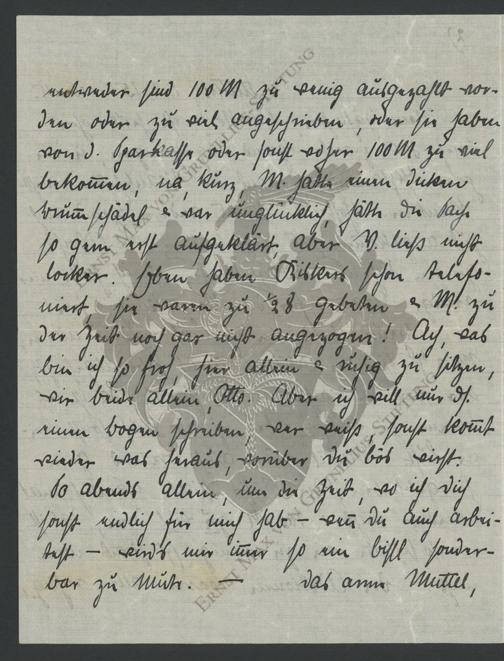 entweder sind 100 M zu wenig ausgezahlt wor-
den oder zu viel angeschrieben, oder sie haben
von d. Sparkasse oder sonst woher 100 M zu viel
bekom̄en, na, kurz, M. hatte einen dicken
Brum̄schädel & war unglücklich, hätte die Sache
so gern erst aufgeklärt, aber V. ließ nicht
locker. Eben haben Riskers schon telefo-
niert, sie waren zu ½8 gebeten & M. zu
der Zeit noch gar nicht angezogen! Ach, was
bin ich so froh, hier allein & ruhig zu sitzen,
wir beide allein, Otto. Aber ich will nur ds.
einen Bogen schreiben wer weiß, sonst kom̄t
wieder was heraus, worüber du bös wirst.
So abends allein, um die Zeit, wo ich dich
sonst endlich für mich hab – wen̄ du auch arbei-
test – wirds mir im̄er so ein bissl sonder-
bar zu Mute. — das arme Muttel,
ERNST MAX VON GRUNELIUS-STIFTUNG
ERNST MAX VON GRUNELIUS-STIFTUNG